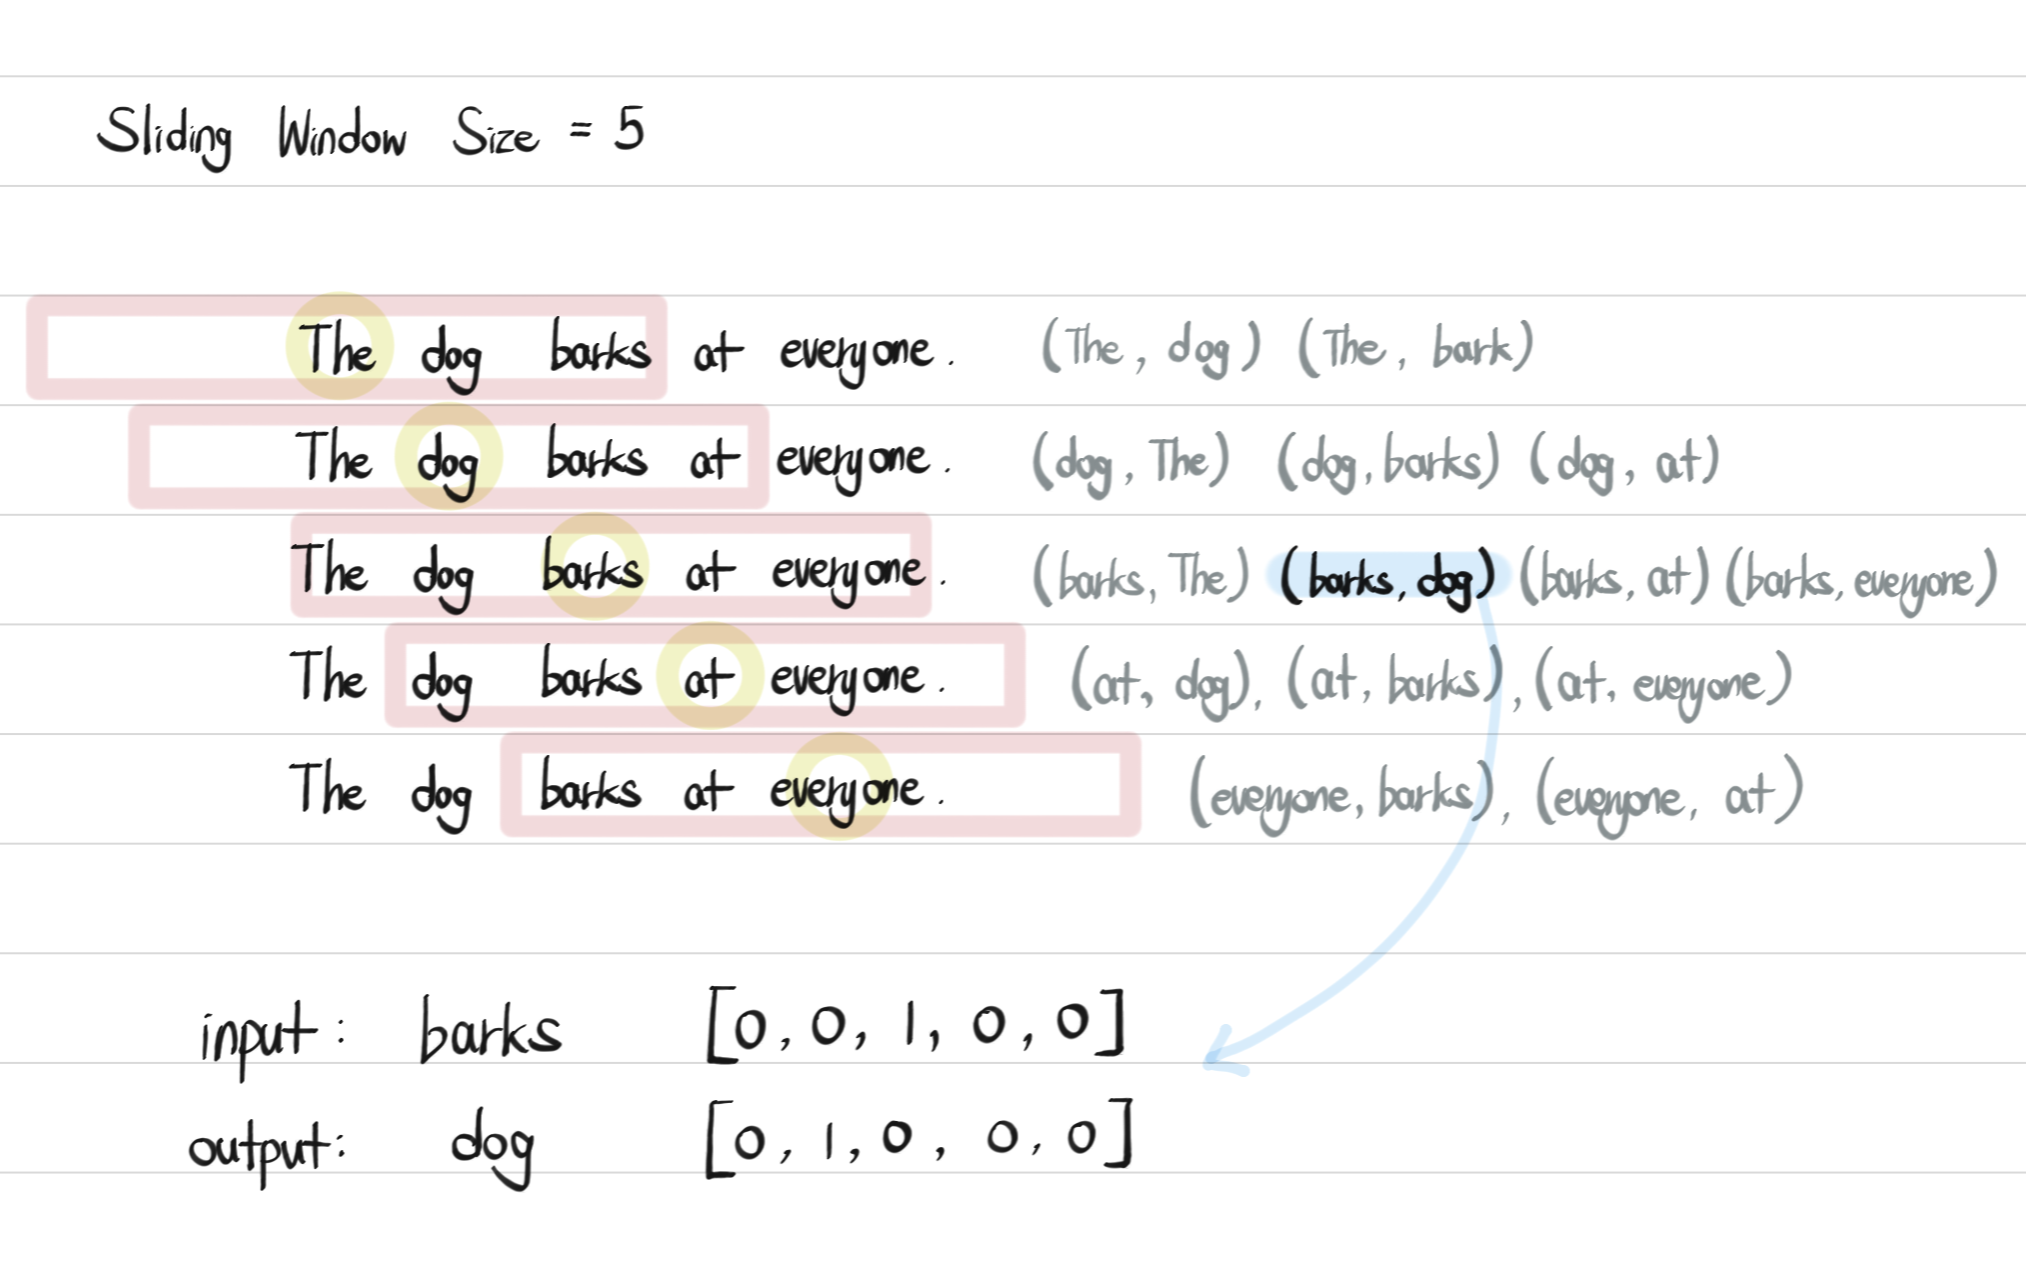 Sliding Window Size = 5
The dog barks at everyone. (The, dog) (The, bark)
The dog barks at everyone. (dog, The) (dog, barks) (dog, at)
The dog barks at everyone. (barks, The) (barks, dog) (barks, at) (barks, everyone)
The dog barks at everyone. (at, dog), (at, barks), (at, everyone)
The dog barks at everyone. (everyone, barks), (everyone, at)
input: barks [0, 0, 1, 0, 0]
output: dog [0, 1, 0, 0, 0]